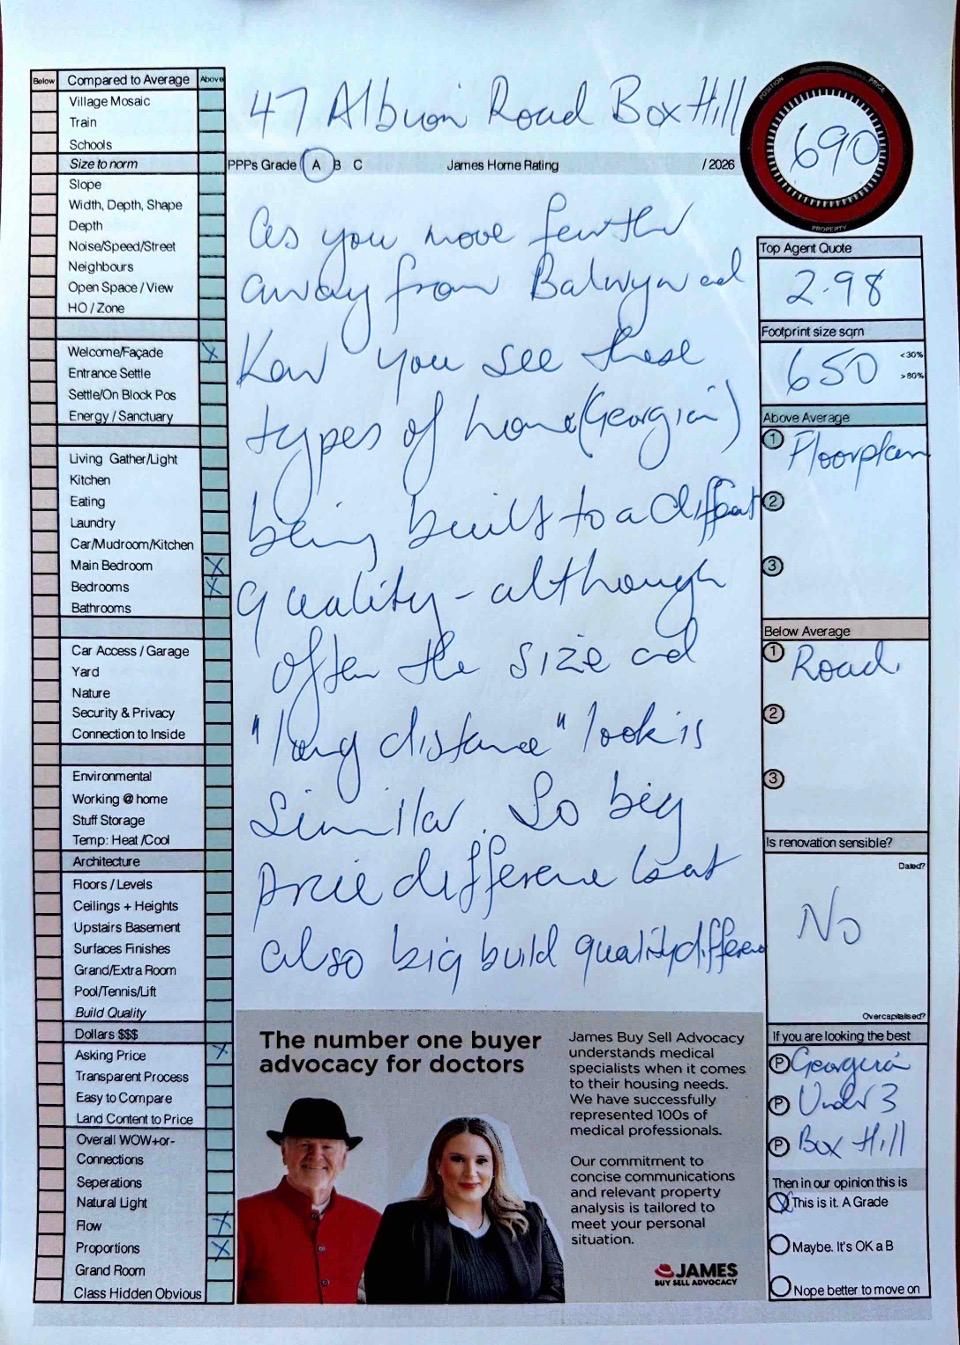 47 Albion Road Box Hill
PPPs Grade A B C James Home Rating / 2026
Below Compared to Average Above
Village Mosaic
Train
Schools
Size to norm
Slope
Width, Depth, Shape
Depth
Noise/Speed/Street
Neighbours
Open Space / View
HO / Zone
Welcome/Façade
Entrance Settle
Settle/On Block Pos
Energy / Sanctuary
Living Gather/Light
Kitchen
Eating
Laundry
Car/Mudroom/Kitchen
Main Bedroom
Bedrooms
Bathrooms
Car Access / Garage
Yard
Nature
Security & Privacy
Connection to Inside
Environmental
Working @ home
Stuff Storage
Temp: Heat /Cool
Architecture
Floors / Levels
Ceilings + Heights
Upstairs Basement
Surfaces Finishes
Grand/Extra Room
Pool/Tennis/Lift
Build Quality
Dollars $$$
Asking Price
Transparent Process
Easy to Compare
Land Content to Price
Overall WOW+or-
Connections
Seperations
Natural Light
Flow
Proportions
Grand Room
Class Hidden Obvious
As you move further
away from Balwyn and
Kew you see these
types of home (Georgian)
being built to a different
quality - although
often the size and
"long distance" look is
similar. So big
price difference but
also big build quality difference
The number one buyer
advocacy for doctors
James Buy Sell Advocacy
understands medical
specialists when it comes
to their housing needs.
We have successfully
represented 100s of
medical professionals.
Our commitment to
concise communications
and relevant property
analysis is tailored to
meet your personal
situation.
JAMES
BUY SELL ADVOCACY
POSITION PRICE
690
PROPERTY
Top Agent Quote
2.98
Footprint size sqm
650 <30%
>80%
Above Average
1 Floorplan
2
3
Below Average
1 Road
2
3
Is renovation sensible?
Dated?
No
Overcapitalised?
If you are looking the best
P Georgian
P Under 3
P Box Hill
Then in our opinion this is
This is it. A Grade
Maybe. It's OK a B
Nope better to move on